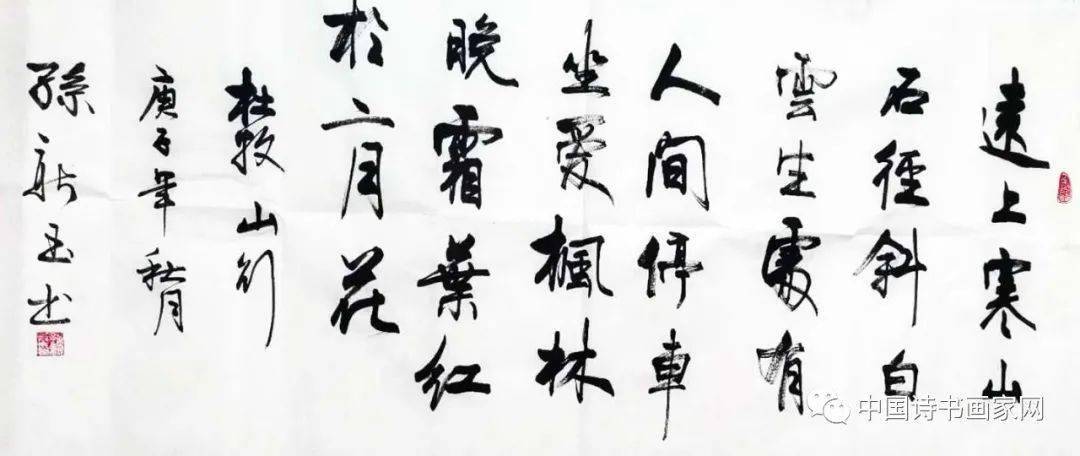 遠上寒山
石徑斜白
雲生處有
人間停車
坐爱楓林
晚霜葉红
於二月花
杜牧山行
庚子年秋月
孫新玉书
中国诗书画家网